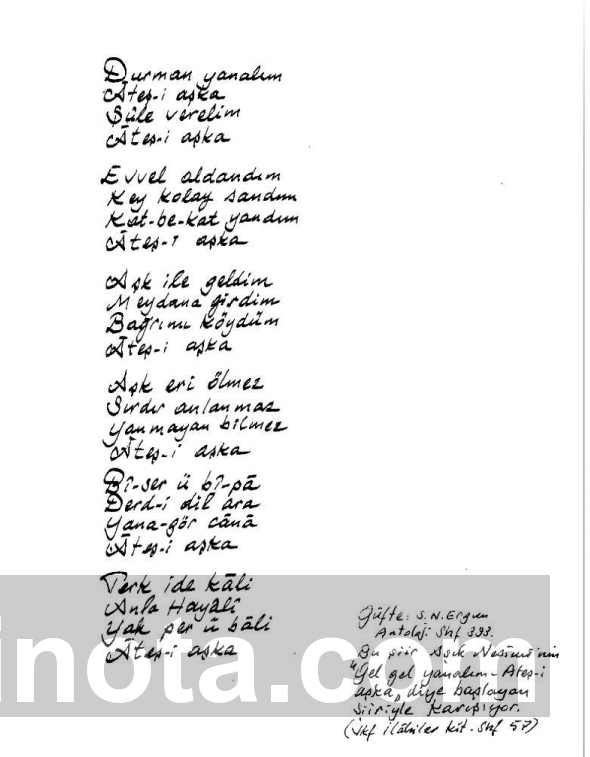 Durman yanalım
Āteş-i aşka
Şûle verelim
Āteş-i aşka
Evvel aldandım
Key kolay sandım
Kat-be-kat yandım
Āteş-i aşka
Aşk ile geldim
Meydana girdim
Bağrımı köydüm
Āteş-i aşka
Aşk eri ölmez
Sırdır anlanmaz
Yanmayan bilmez
Āteş-i aşka
Bî-ser ü bî-pā
Derd-i dil ara
Yana-gör cānā
Āteş-i aşka
Terk ide kāli
Anla Hayālî
Yak per ü bāli
Āteş-i aşka
Güfte: S.N.Ergun
Antoloji Shf 393.
Bu şiir Aşık Nesimi'nin
"Gel gel yanalım - Ateş-i
aşka" diye başlayan
şiiriyle karışıyor.
(Vkf İlâhiler Kit. Shf 57)
inota.com